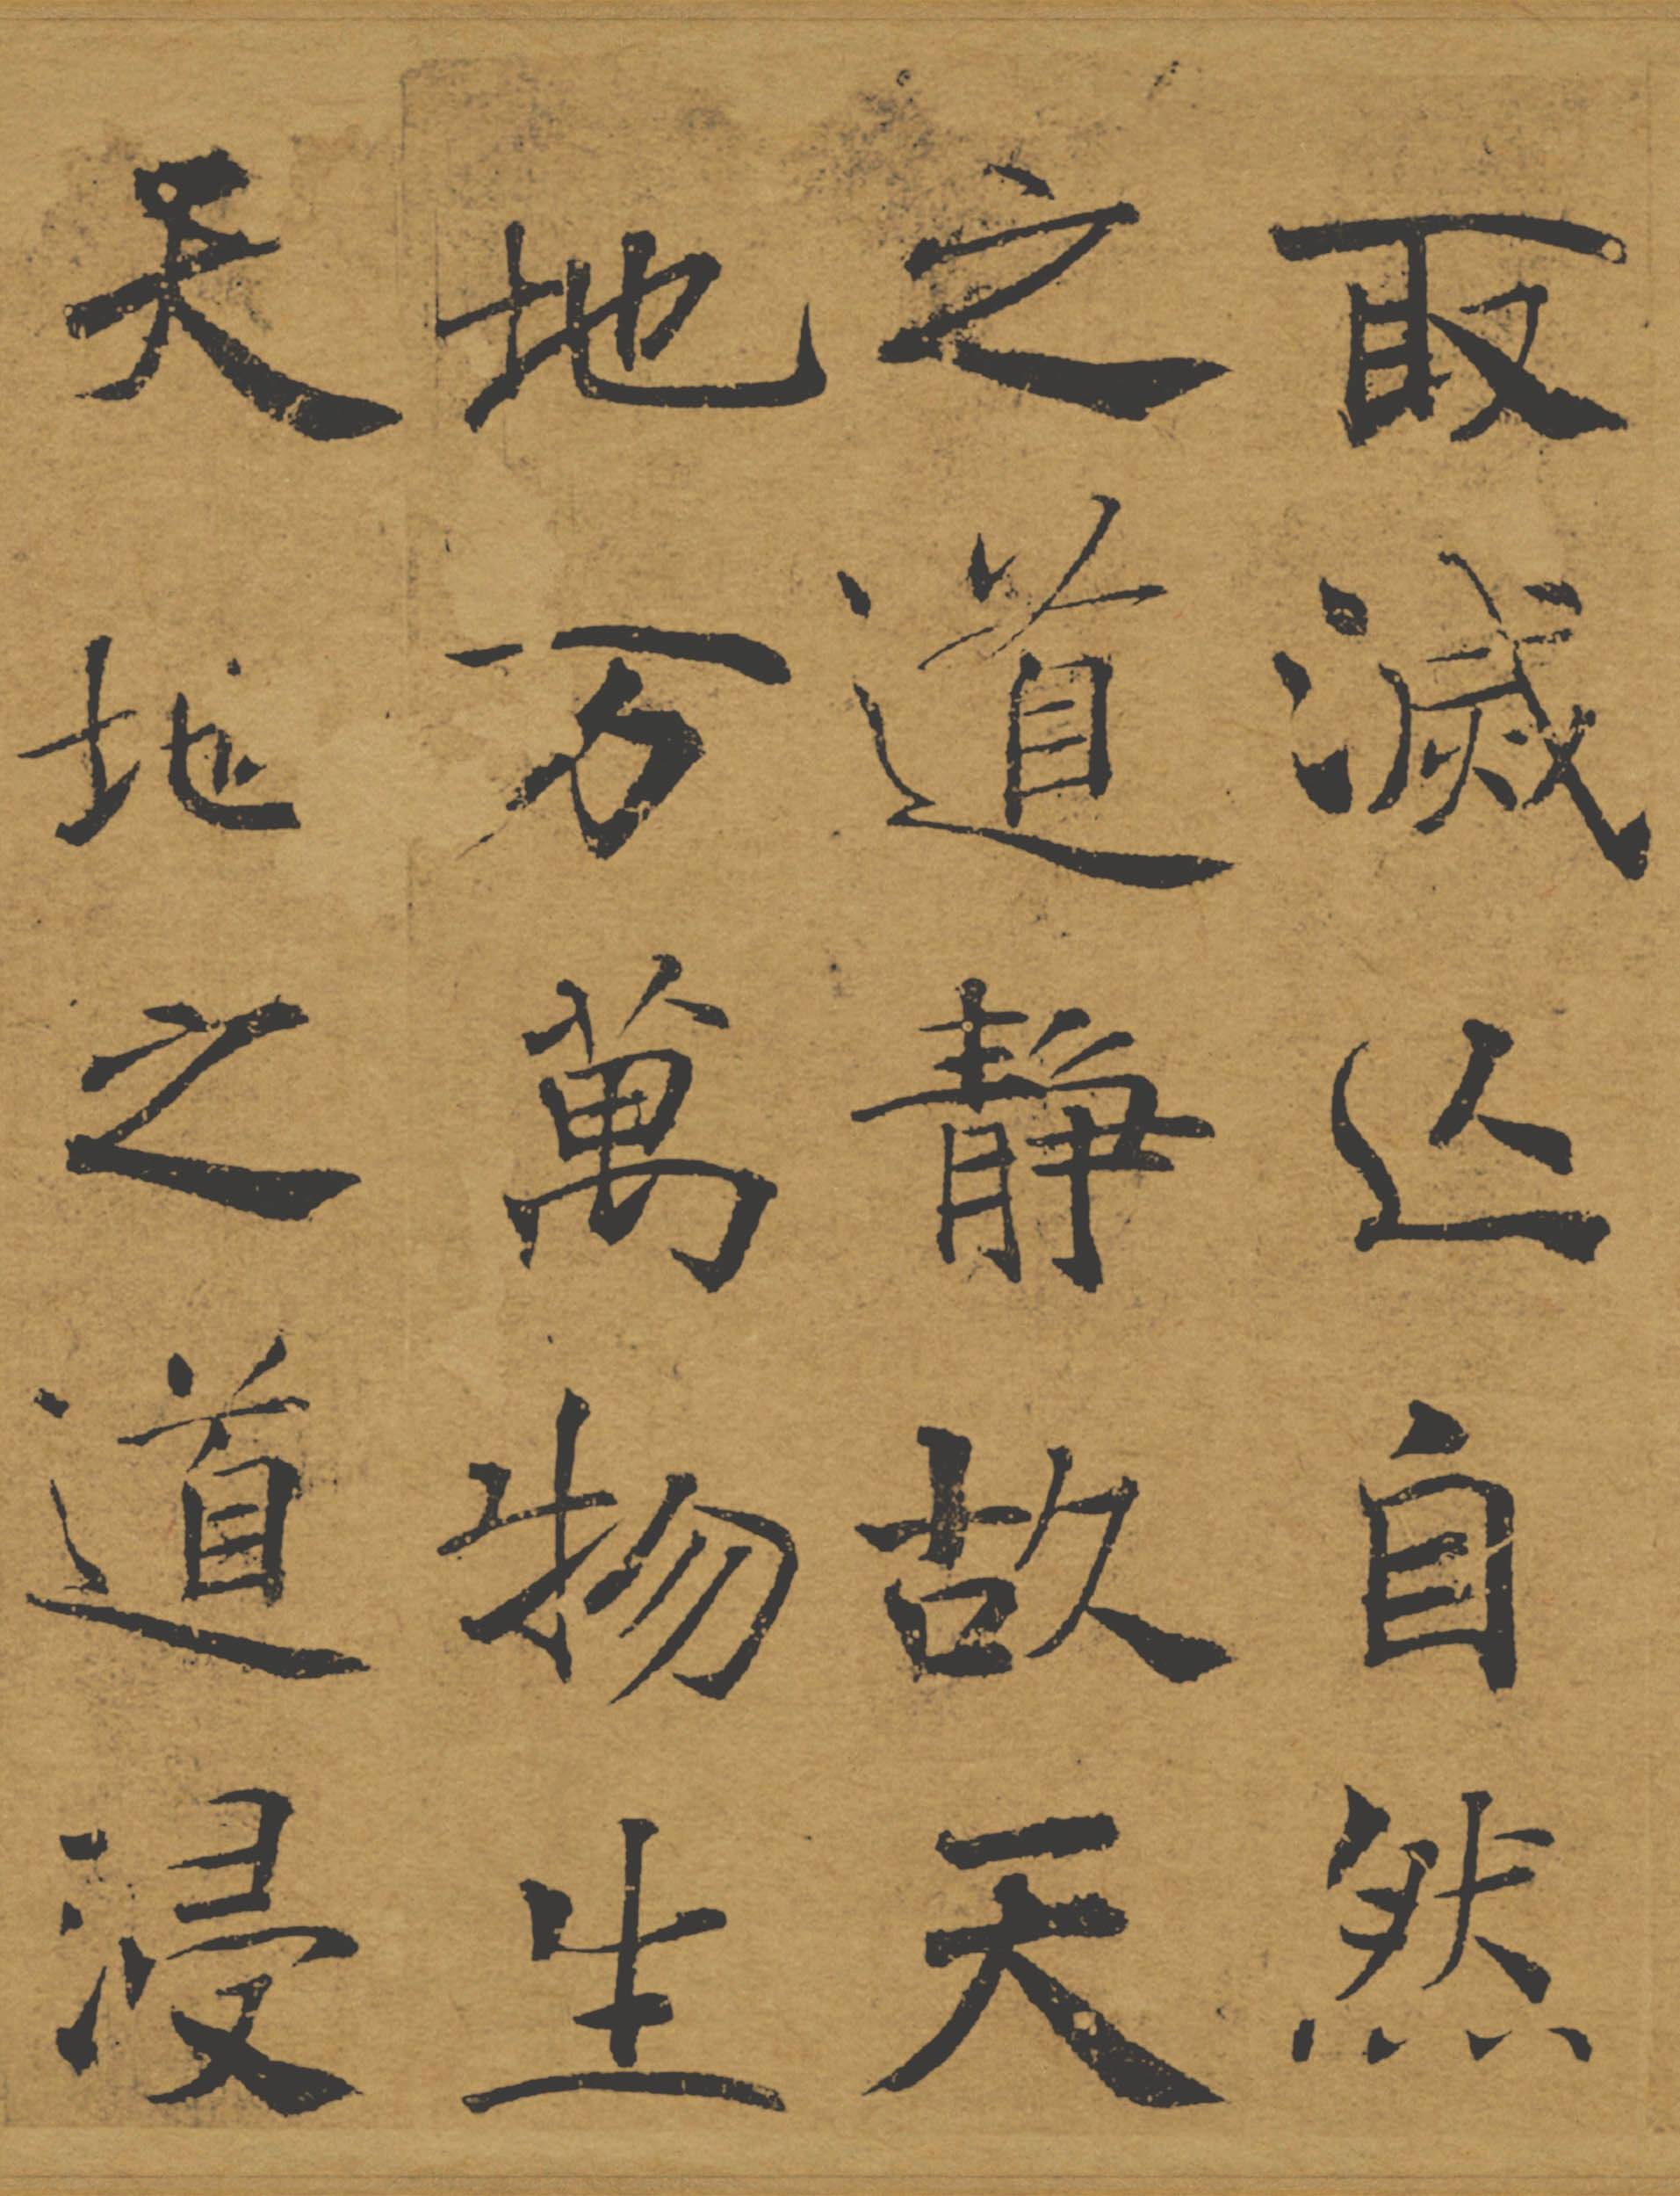 取滅亡自然
之道静故天
地万萬物生
天地之道浸